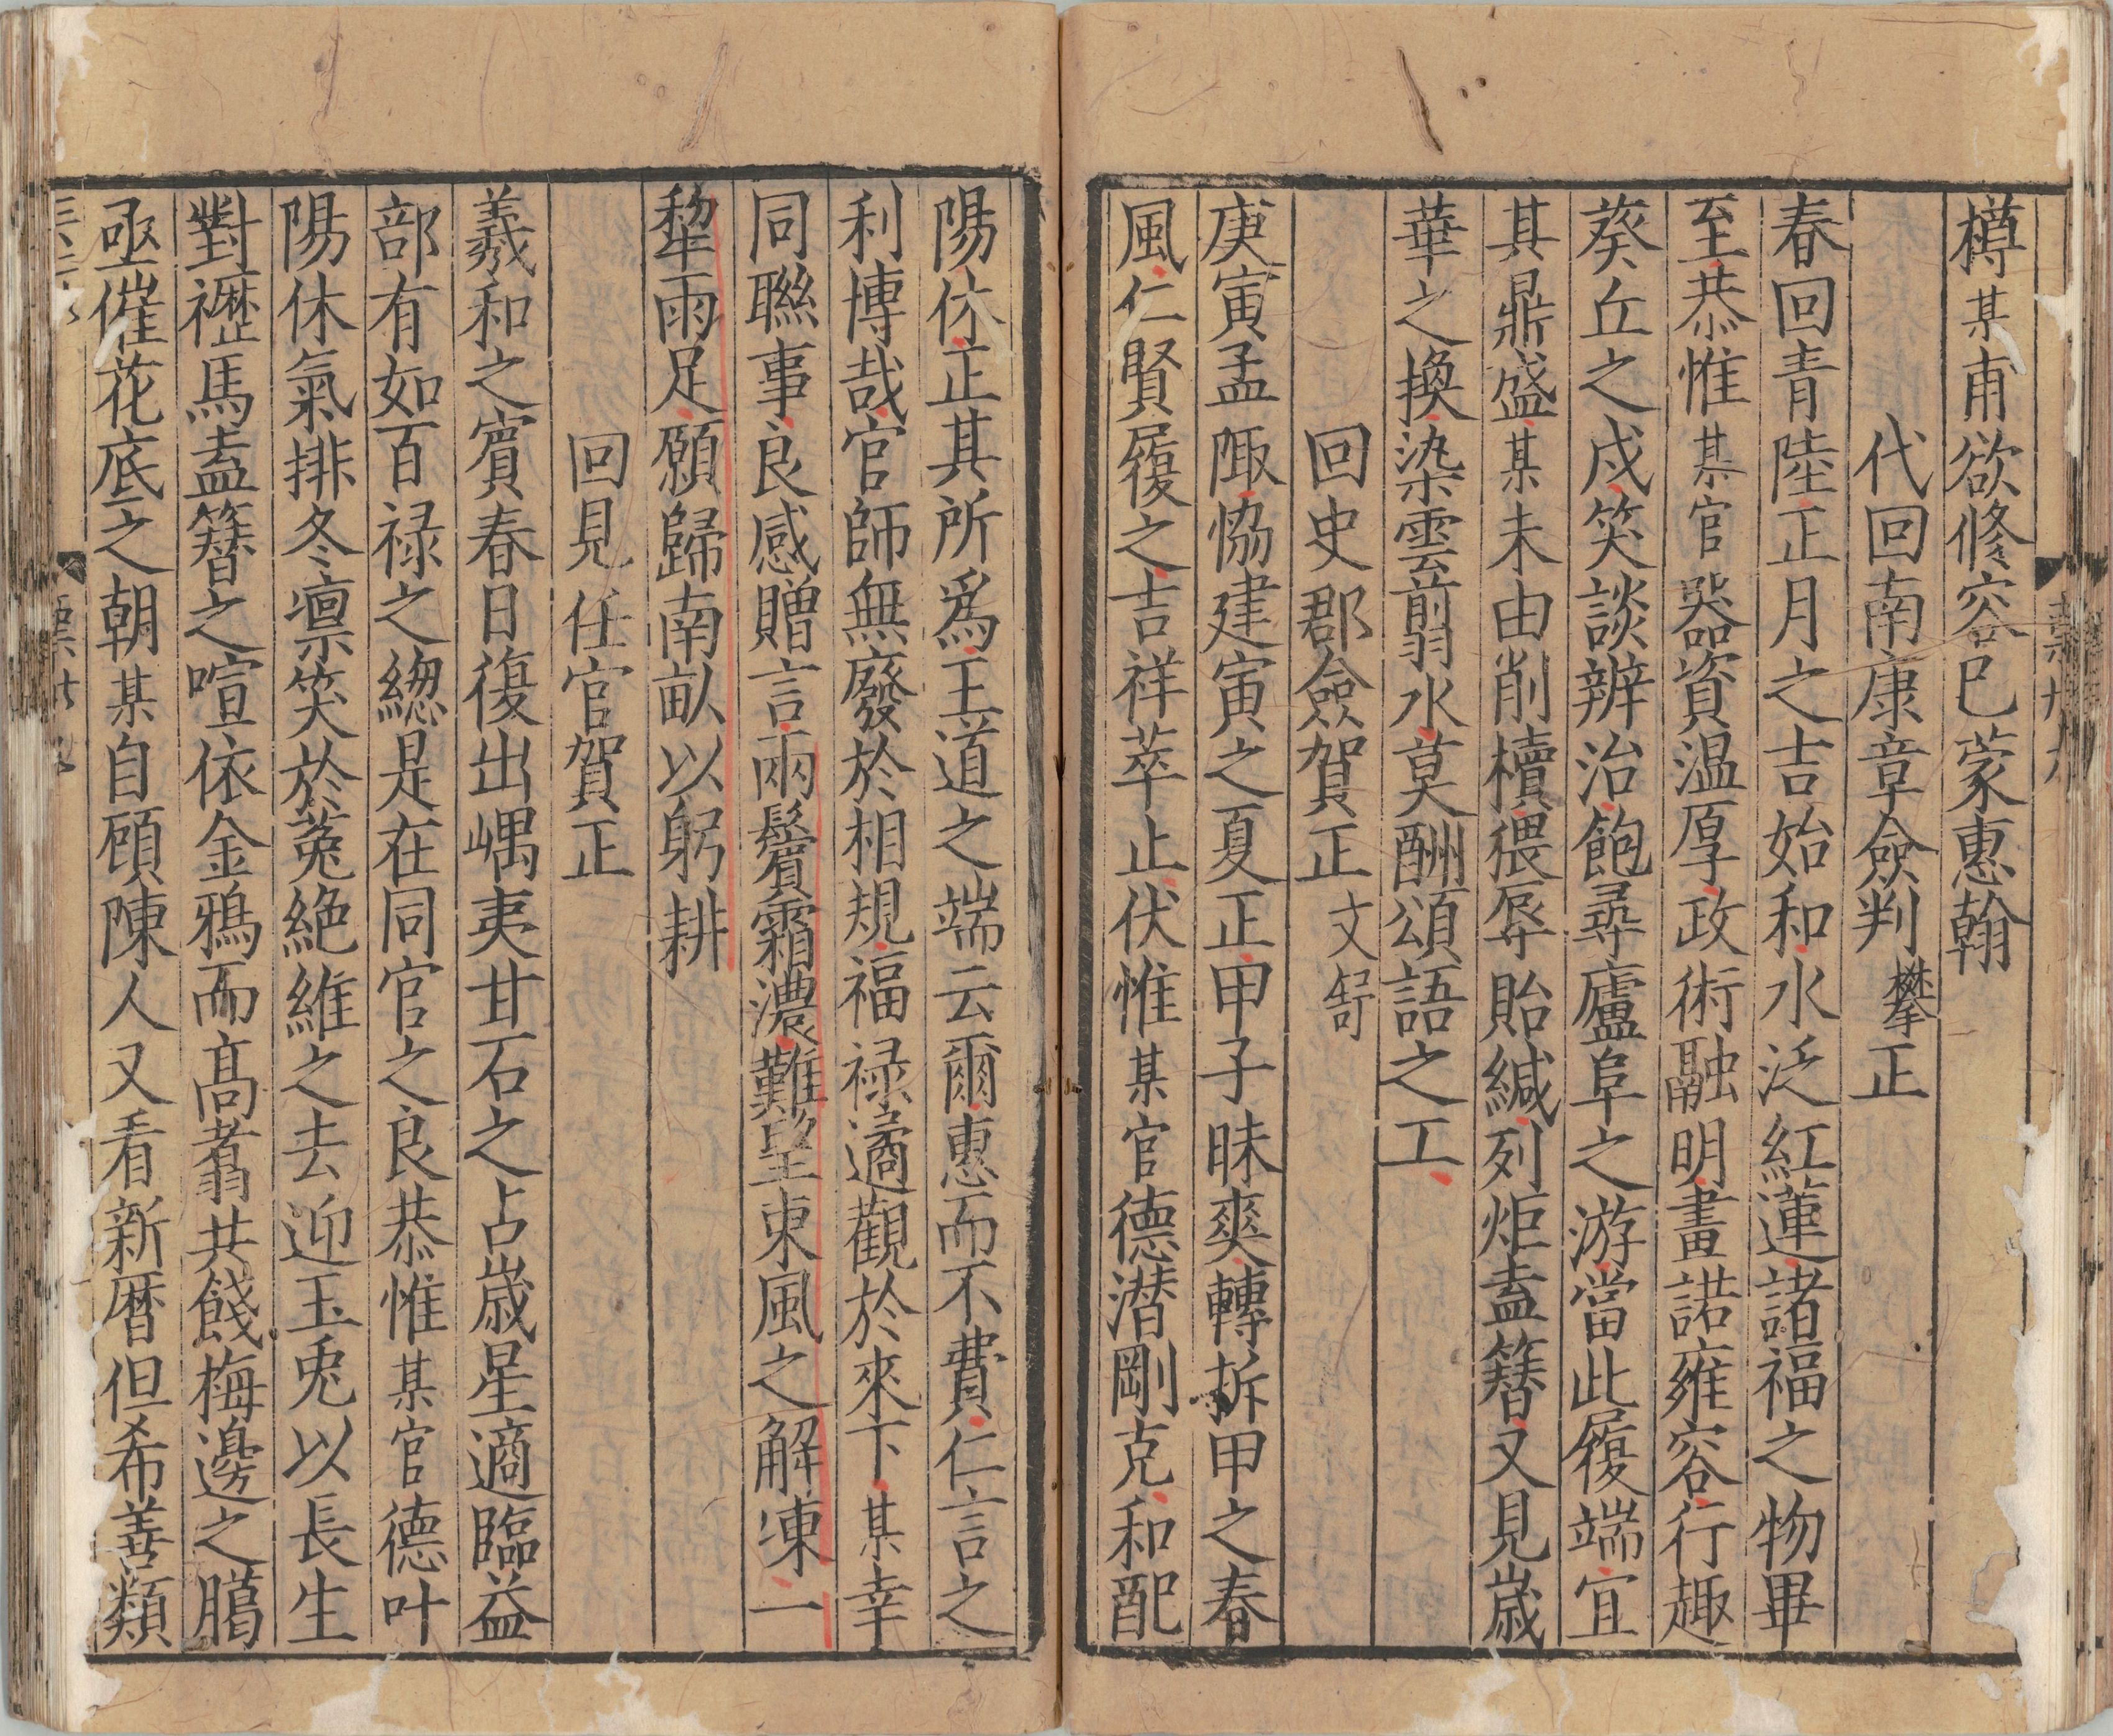 樽某甫欲修容已蒙惠翰
代回南康章僉判攀正
春回青陸正月之吉始和水泛紅蓮諸福之物畢
至恭惟某官器資温厚政術融明畫諾雍容行趣
葵丘之戍笑談辨治飽尋廬阜之游當此履端宜
其鼎盛某未由削櫝猥辱貽緘列炬盍簪又見歲
華之換染雲翦水莫酬頌語之工
回史郡僉賀正文
庚寅孟陬恊建寅之夏正甲子昧爽轉拆甲之春
風仁賢履之吉祥萃止伏惟某官德潜剛克和配
陽休正其所爲王道之端云爾惠而不費仁言之
利博哉官師無廢於相規福禄遹觀於來下某幸
同聯事良感贈言兩鬢霜濃難望東風之解凍一
犂雨足願歸南畝以躬耕
回見任官賀正
羲和之賓春日復出嵎夷甘石之占歲星適臨益
部有如百禄之緫是在同官之良恭惟某官德叶
陽休氣排冬凛笑於菟絶維之去迎玉兎以長生
對櫪馬盍簪之喧依金鴉而高翥共餞梅邊之臈
亟催花底之朝某自顧陳人又看新曆但希善類